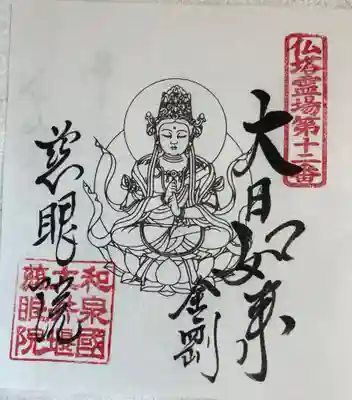 仏塔霊場第十二番
大日如来
金剛
慈眼院
和泉國
大井堰
慈眼院